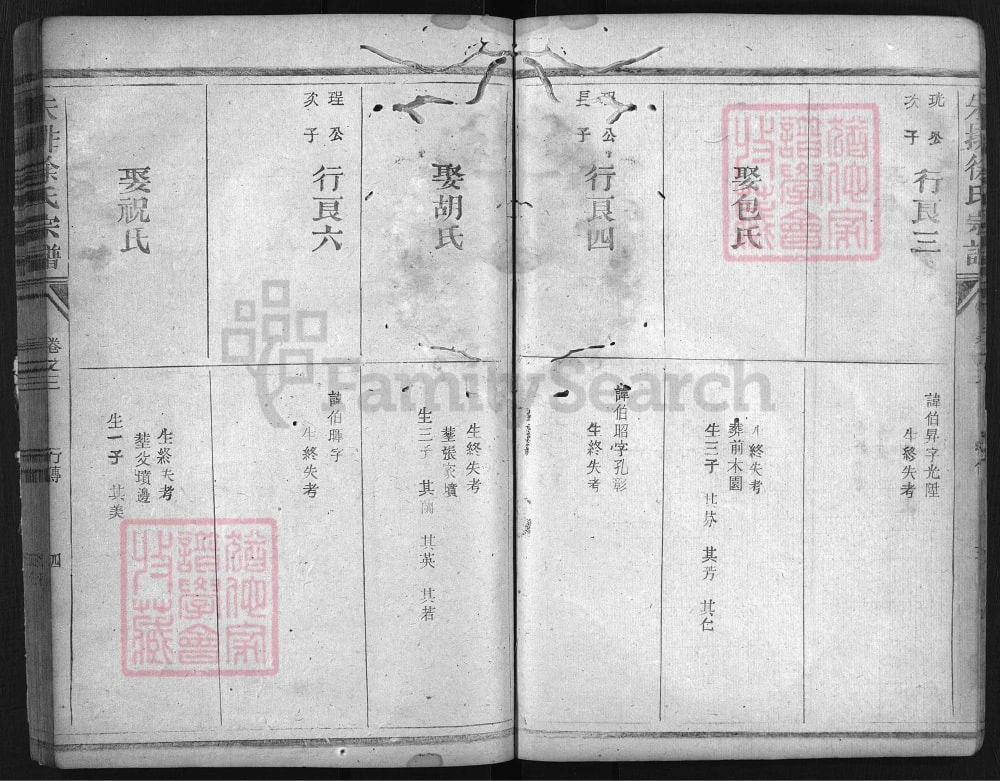 珖公
次子
行艮三
諱伯昇字光陞
生終失考
娶包氏
生終失考
葬前木園
生三子 其芬 其芳 其仁
珵公
長子
行艮四
諱伯昭字孔彰
生終失考
娶胡氏
生終失考
葬張家墳
生三子 其蘭 其英 其若
珵公
次子
行艮六
諱伯琿字
生終失考
娶祝氏
生終失考
葬父墳邊
生一子 其美
徐氏宗譜
卷之三
行傳
四
FamilySearch